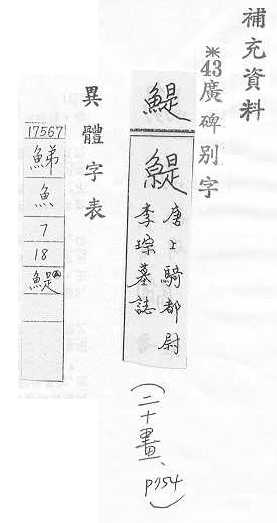 補充資料
※43廣碑别字
鯷
鯷
唐上騎都尉
李琮墓誌
(二十畫、p754)
異體字表
17567
鮷
魚
7
18
鯷